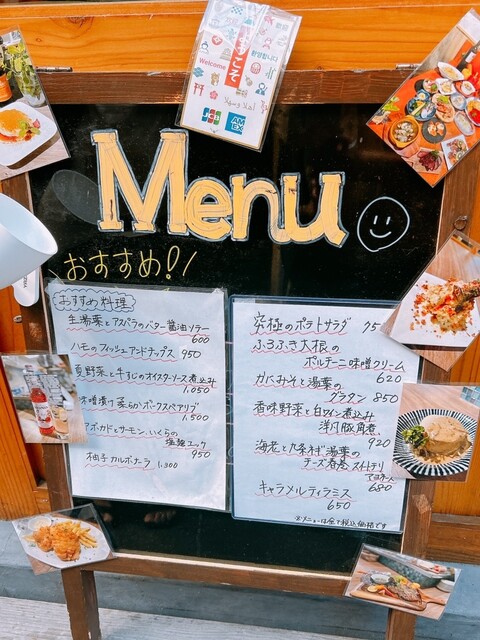 ようこそ
Welcome
JCB
AMEX
Menu
おすすめ!
おすすめ料理
生湯葉とアスパラのバター醤油ソテー
600
ハモのフィッシュアンドチップス 950
夏野菜と牛すじのオイスターソース煮込み
1,050
味噌漬け柔らかポークスペアリブ
1,500
アボカドとサーモン、いくらの
950
柚子カルボナーラ 1,300
究極のポテトサラダ
ふろふき大根の
ポルチーニ味噌クリーム
620
かにみそと湯葉の
グラタン 850
香味野菜と白ワイン煮込み
洋風豚角煮
920
海老と九条ねぎ湯葉の
チーズ春巻 スイートチリ
マヨネーズ
680
キャラメルティラミス
650
※メニューは全て税込価格です